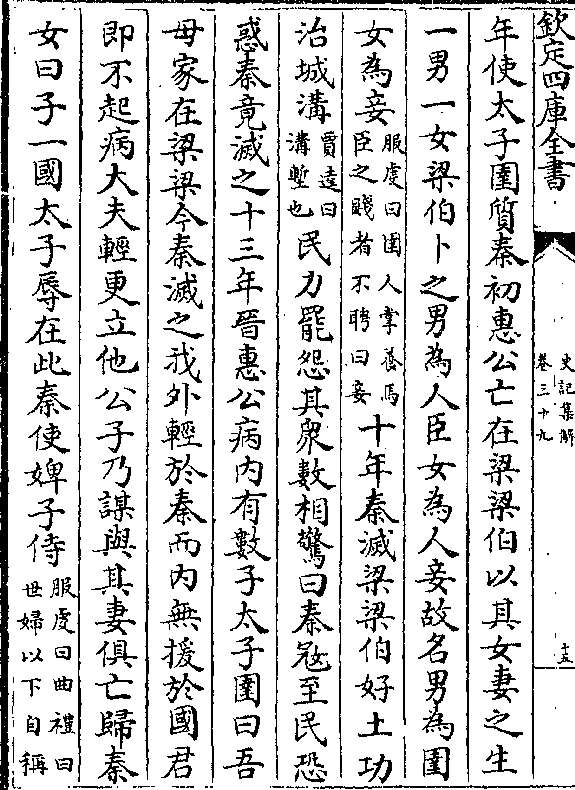 欽定四庫全書
史記集解
卷三十九
十五
年使太子圉質秦初惠公亡在梁梁伯以其女妻之生
一男一女梁伯卜之男為人臣女為人妾故名男為圉
女為妾服虔曰圉人掌養馬臣之賤者不聘曰妾十年秦滅梁梁伯好土功
治城溝賈逵曰溝塹也民力罷怨其衆數相驚曰秦寇至民恐
惑秦竟滅之十三年晉惠公病内有數子太子圉曰吾
母家在梁梁今秦滅之我外輕於秦而内無援於國君
即不起病大夫輕更立他公子乃謀與其妻俱亡歸秦
女曰子一國太子辱在此秦使婢子侍服虔曰曲禮曰世婦以下自稱